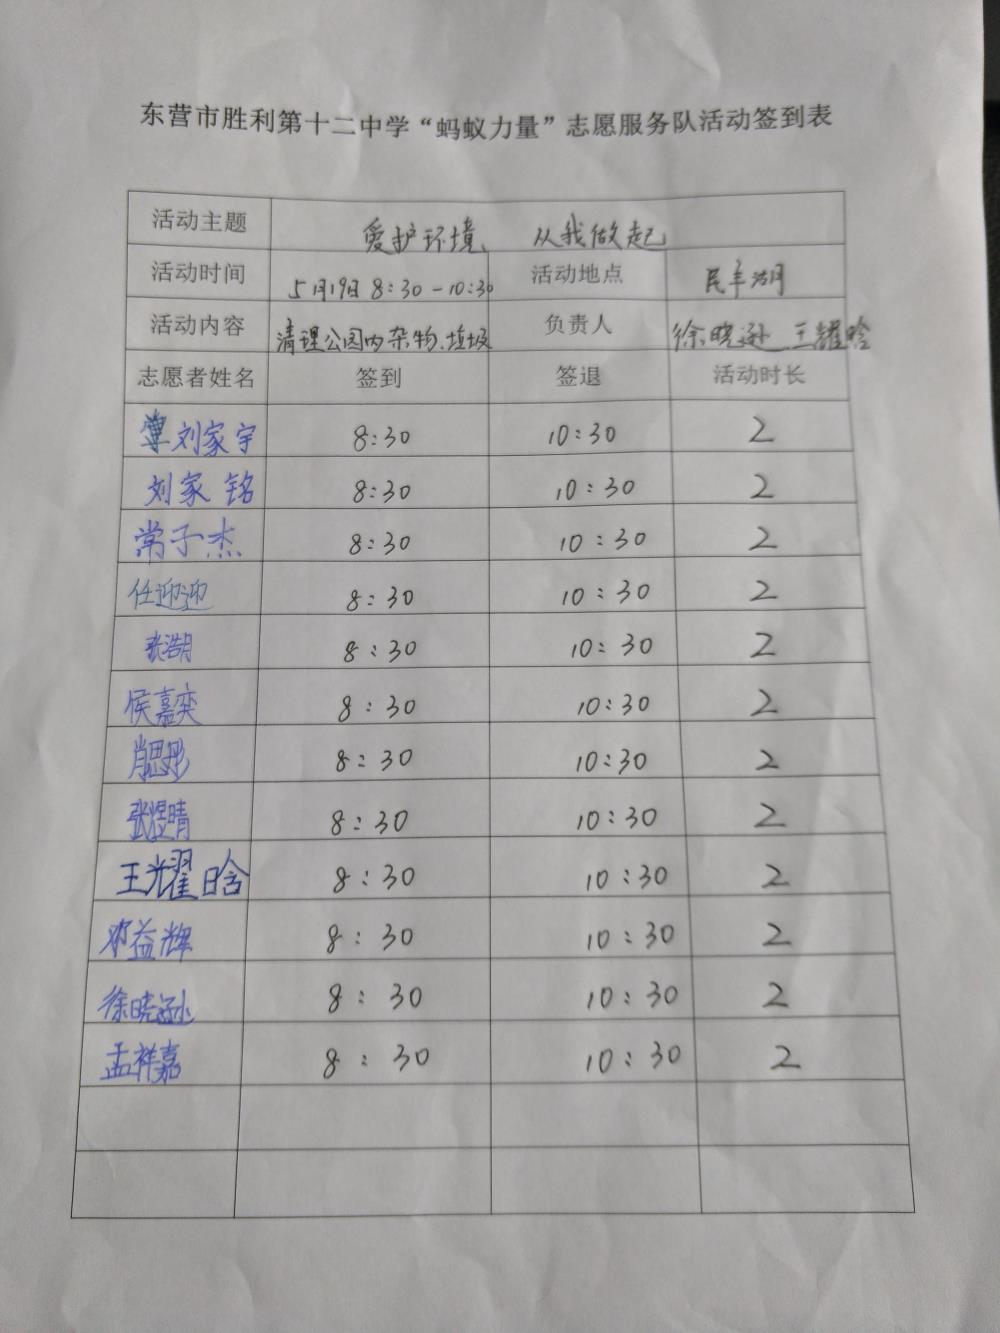 东营市胜利第十二中学“蚂蚁力量”志愿服务队活动签到表
活动主题 爱护环境、从我做起
活动时间 5月19日 8:30-10:30 活动地点 民丰湖
活动内容 清理公园内杂物、垃圾 负责人 徐晓逊 王耀晗
志愿者姓名 签到 签退 活动时长
刘家宇 8:30 10:30 2
刘家铭 8:30 10:30 2
常子杰 8:30 10:30 2
任迎迎 8:30 10:30 2
张浩月 8:30 10:30 2
侯嘉奕 8:30 10:30 2
肖思彤 8:30 10:30 2
张煜晴 8:30 10:30 2
王耀晗 8:30 10:30 2
邓益辉 8:30 10:30 2
徐晓逊 8:30 10:30 2
孟祥嘉 8:30 10:30 2